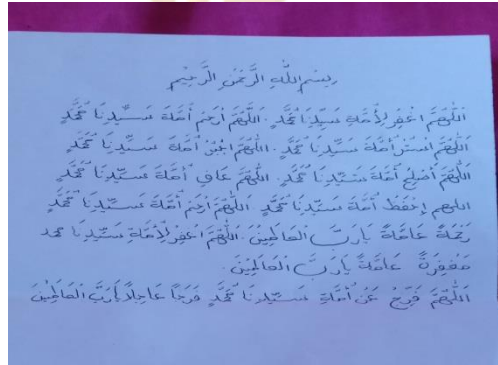 بِسْمِ اللَّهِ الرَّحْمَنِ الرَّحِيْمِ
اَللَّهُمَّ اغْفِرْ لِأُمَّةِ سَيِّدِنَا مُحَمَّدٍ . اَللَّهُمَّ ارْحَمْ أُمَّةَ سَيِّدِنَا مُحَمَّدٍ
اَللَّهُمَّ اسْتُرْ أُمَّةَ سَيِّدِنَا مُحَمَّدٍ . اَللَّهُمَّ اجْبُرْ أُمَّةَ سَيِّدِنَا مُحَمَّدٍ
اَللَّهُمَّ أَصْلِحْ أُمَّةَ سَيِّدِنَا مُحَمَّدٍ . اَللَّهُمَّ عَافِ أُمَّةَ سَيِّدِنَا مُحَمَّدٍ
اللهم إحْفَظْ أُمَّةَ سَيِّدِنَا مُحَمَّدٍ اَللَّهُمَّ ارْحَمْ أُمَّةَ سَيِّدِنَا مُحَمَّدٍ
رَحْمَةً عَامَّةً يَارَبَّ الْعَالَمِيْنَ . اَللَّهُمَّ اغْفِرْ لِأُمَّةِ سَيِّدِنَا محمد
مَغْفِرَةً عَامَّةً يَارَبَّ الْعَالَمِيْنَ .
اَللَّهُمَّ فَرِّجْ عَنْ أُمَّةِ سَيِّدِنَا مُحَمَّدٍ فَرَجًا عَاجِلًا يَارَبَّ الْعَالَمِيْنَ